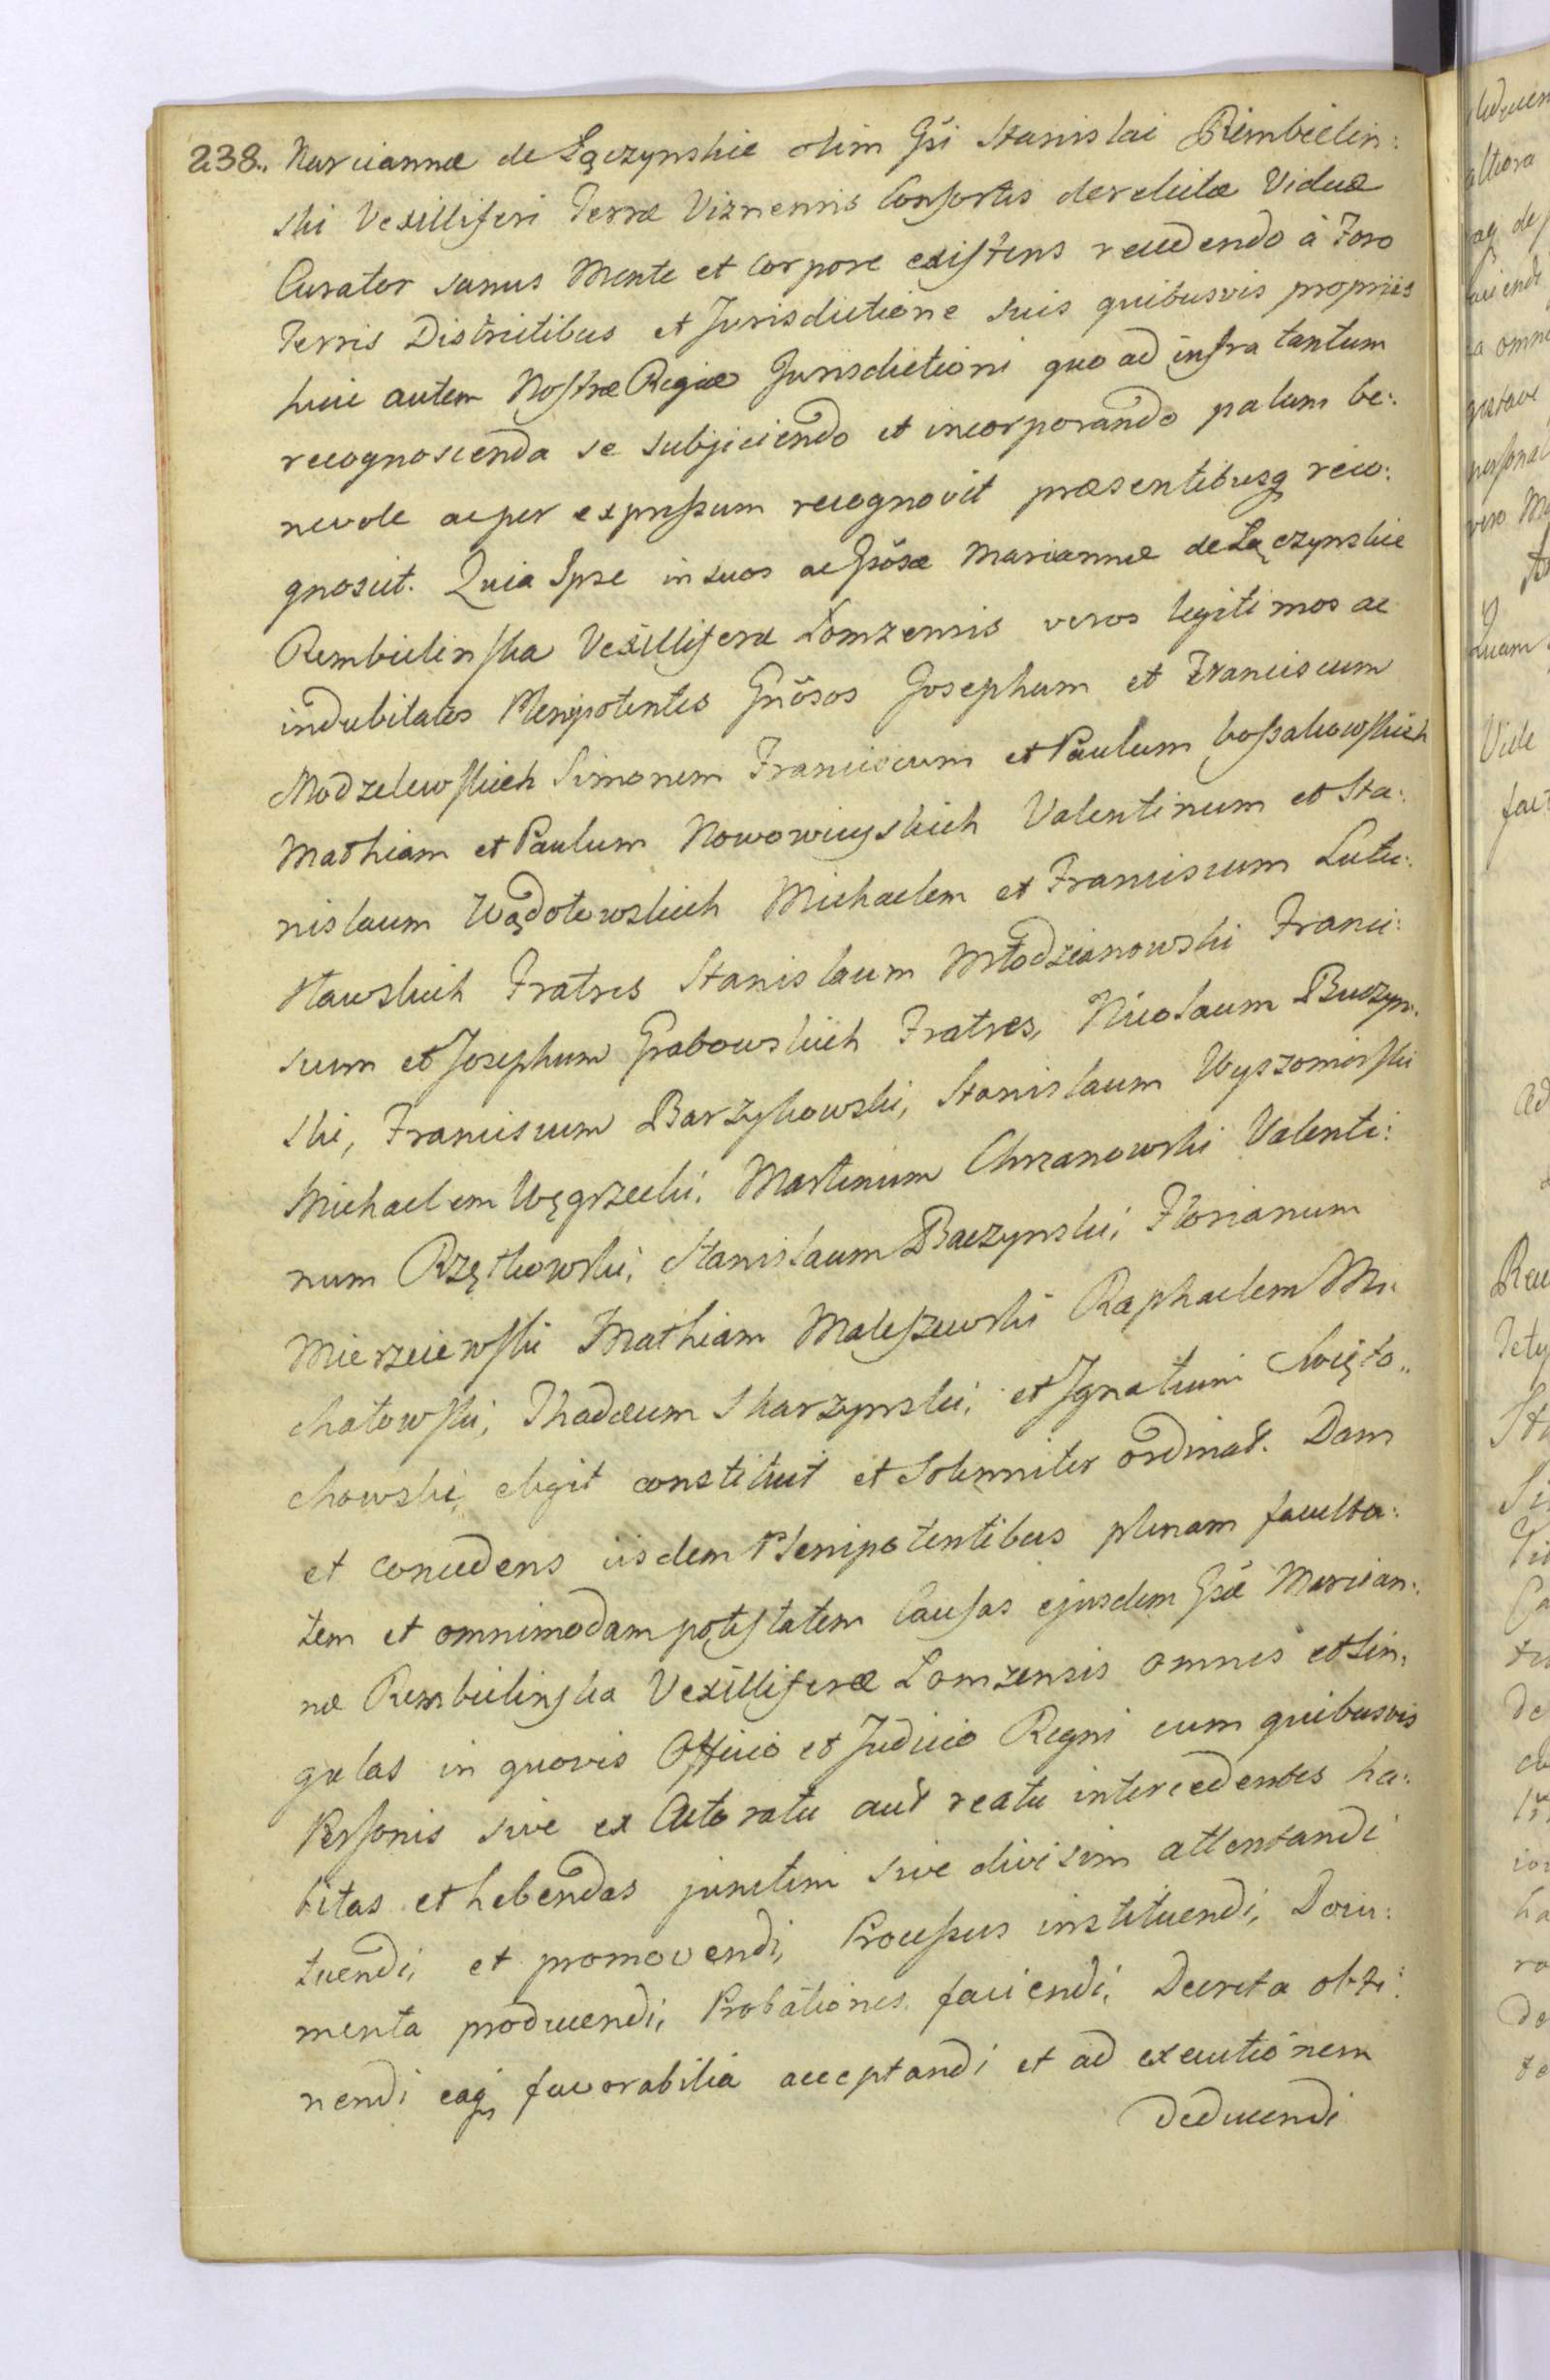 238. Mariannæ de Łączynskie olim Gsi Stanislai Rembielin:
ski Vexilliferi Terræ Viznensis Consortis derelictæ Viduæ
Curator sanus Mente et Corpore existens recedendo à Foro
Terris Districtibus et Jurisdictione suis quibusvis propriis
huic autem Nostræ Regiæ Jurisdictioni quo ad infra tantum
recognoscenda se subjiciendo et incorporando palam be:
nevole ac per expressum recognovit præsentibusq reco:
gnoscit. Quia Ipse in suos ac Gsosæ Mariannæ de Łączynskie
Rembielinska Vexilliferæ Lomzensis veros legitimos ac
indubitatos Plenipotentes Gnosos Josephum et Franciscum
Modzelewskich Simonem Franciscum et Paulum Cossakowskich
Mathiam et Paulum Nowowieyskich Valentinum et Sta:
nislaum Wądołowskich Michaelem et Franciscum Lutu:
stawskich Fratres Stanislaum Młodzianowski Franci:
scum et Josephum Grabowskich Fratres, Nicolaum Buczyn:
ski, Franciscum Barzykowski, Stanislaum Wyszomirski
Michaelem Węgrzecki, Martinum Chrzanowski Valenti:
num Rzętkowski, Stanislaum Baczynski, Florianum
Mierzeiewski Mathiam Maleszewski Raphaelem Mi:
chałowski, Thadæum Skarzynski, et Ignatium Swięto:
chowski, eligit constituit et Solenniter ordinat. Dans
et concedens iisdem Plenipotentibus plenam faculta:
tem et omnimodam potestatem Causas ejusdem Gsæ Marian:
næ Rembielinska Vexilliferæ Lomzensis omnes et sin:
gulas in quovis Officio et Judicio Regni cum quibusvis
Personis sive ex Actoratu aut reatu intercedentes ha:
bitas et habendas junctim sive divisim attentandi
tuendi, et promovendi, Processus instituendi, Docu:
menta producendi, Probationes faciendi, Decreta obti:
nendi eaq favorabilia acceptandi et ad executionem
deducendi